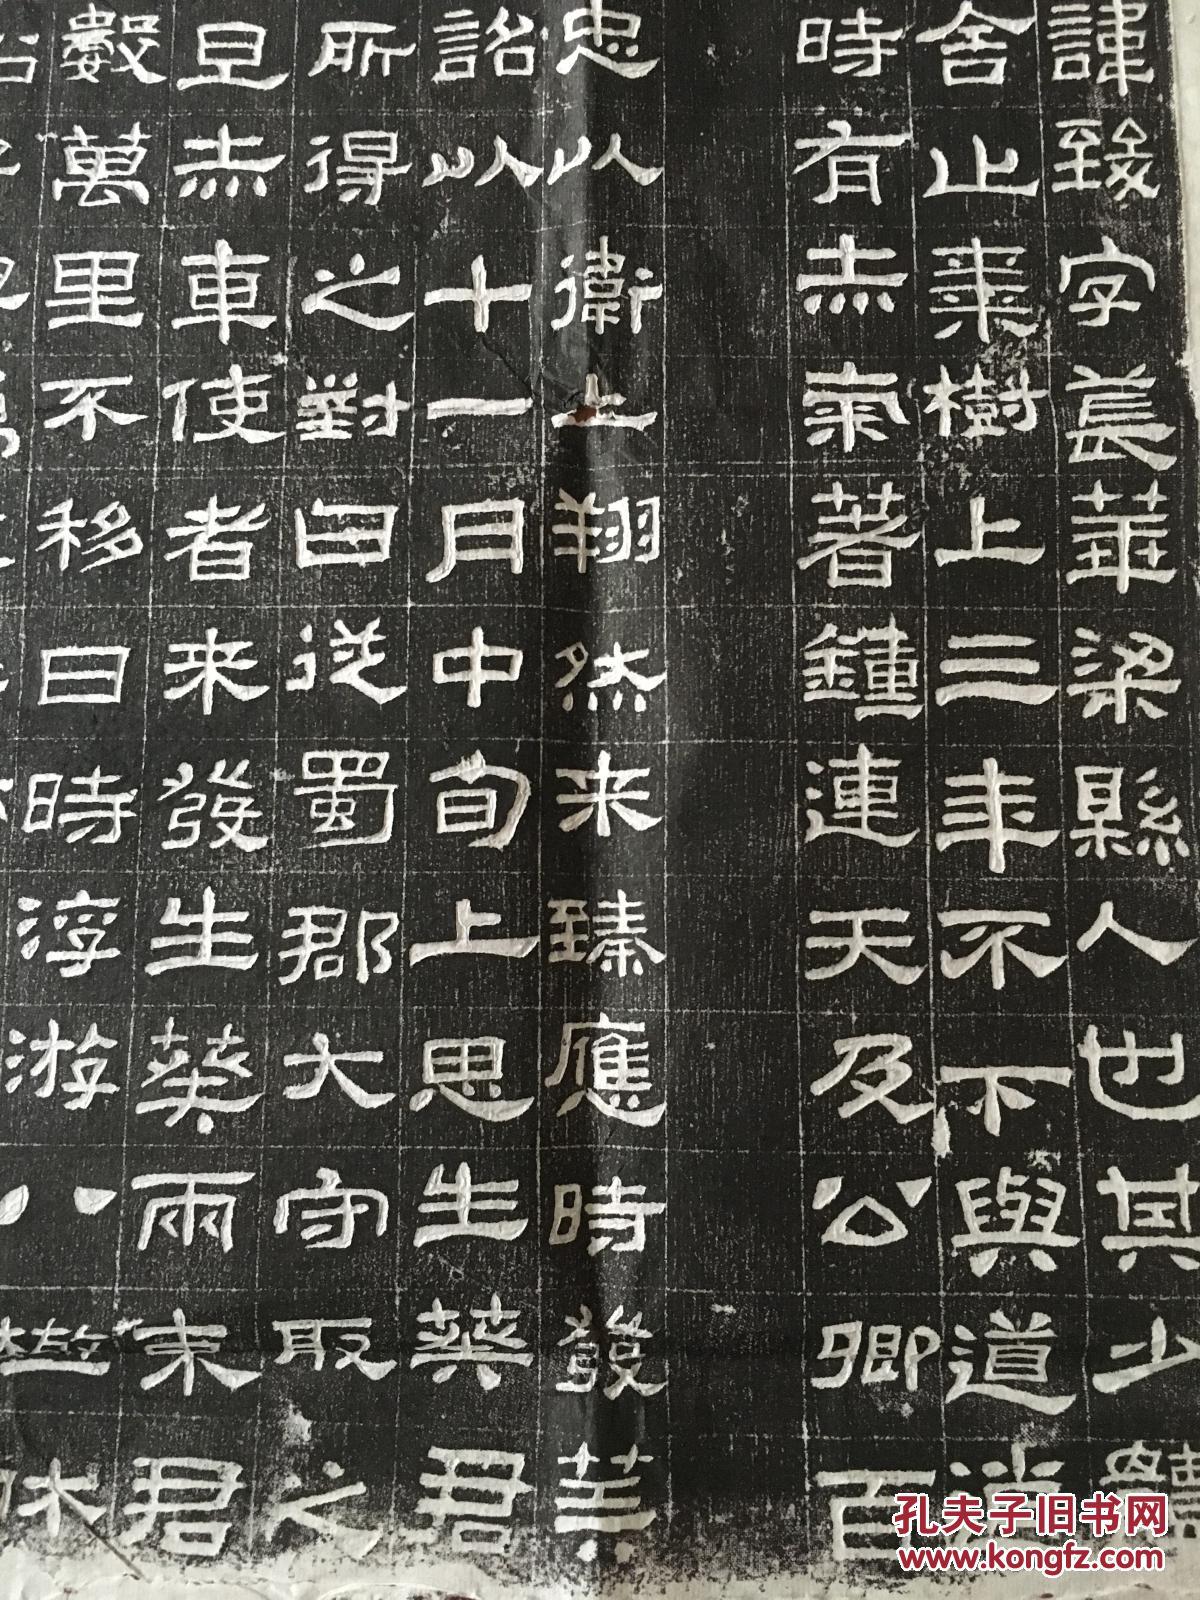 諱致字萇華梁縣人也其少體
舍止棗樹上三年不下與道逍
時有赤氣著鍾連天及公卿百
忠以衛上翔然來臻應時發算
詔以十一月中旬上思生葵君
所得之對曰從蜀郡大守取之
旦赤車使者來發生葵兩束君
數萬里不移日時浮游八極休
孔夫子旧书网
www.kongfz.com